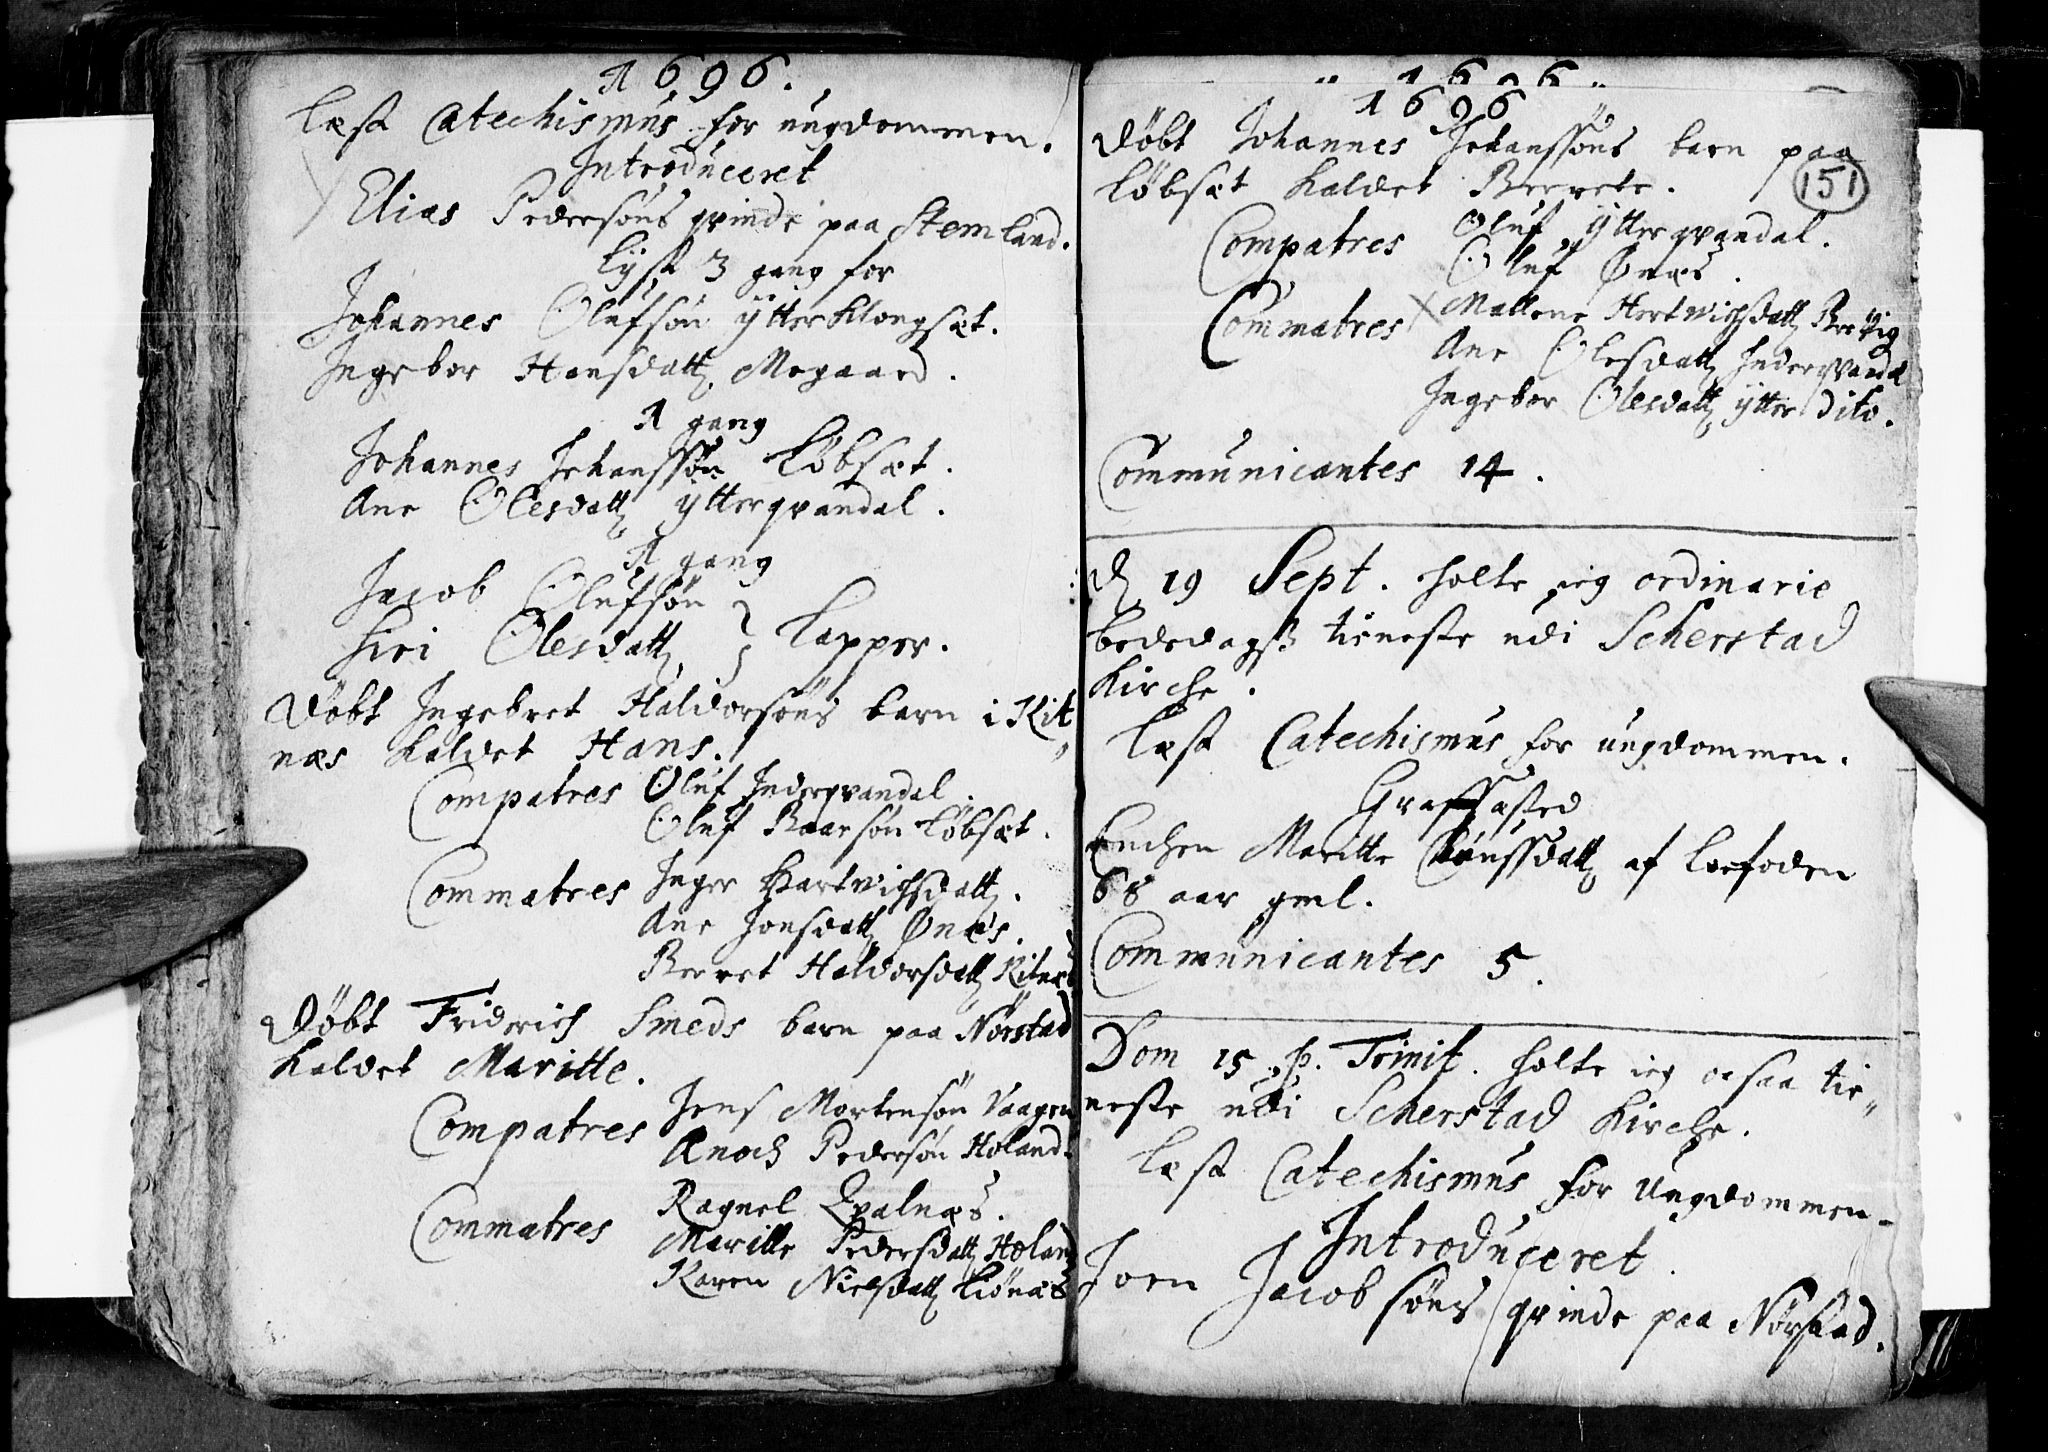 1696.
Læst Catechismus for ungdommen.
Introduceret
Elias Pedersøns qvinde paa Stemland.
Lyst 3 gang for
Johannes Olufsøn ytterKlongsæt.
Ingebor Hansdatt Mogaard.
1 gang
Johannes Johanssøn Løbsæt.
Ane Olesdatt ytterqvandal.
1 gang
Jacob Olufsøn
Siri Olesdatt } Lapper.
Døbt Ingebret Haldorsøns barn i Kit
næs kaldet Hans.
Compatres Oluf Inderqvandal.
Oluf Baarsøn Løbsæt.
Commatres Inger Hartvichsdatt.
Ane Jonsdatt Ønæs.
Berret Haldorsdatt Kitnæs
Døbt Friderich Smeds barn paa Nørstad
kaldet Maritte.
Compatres Jens Mortensøn Vaagen
Enoch Pedersøn Holand.
Commatres Ragnel Qvalnæs.
Maritte Pedersdatt Holand
Karen Nielsdatt Liønæs
1696
1696
Døbt Johannes Johanssøns barn paa
151
Løbsæt kaldet Berrete.
Compatres Oluf ytterqvandal.
Oluf Ønæs.
Commatres Mallene Hertwichsdatt Brevig
Ane Olesdatt Inderqvandal
Ingebor Olesdatt ytter dito.
Communicantes 14.
d 19 Sept. holte ieg ordinarie
bededagss tieneste udi Scherstad
Kirche.
Læst Catechismus for ungdommen.
Graffæsted
Enchen Maritte Knussdatt af Loefoden
68 aar gml.
Communicantes 5.
Dom 15 p. Trinit. holte ieg ocsaa tie
neste udi Scherstad Kirche.
Læst Catechismus for Ungdommen.
Introduceret.
Joen Jacobsøns qvinde paa Nørstad.